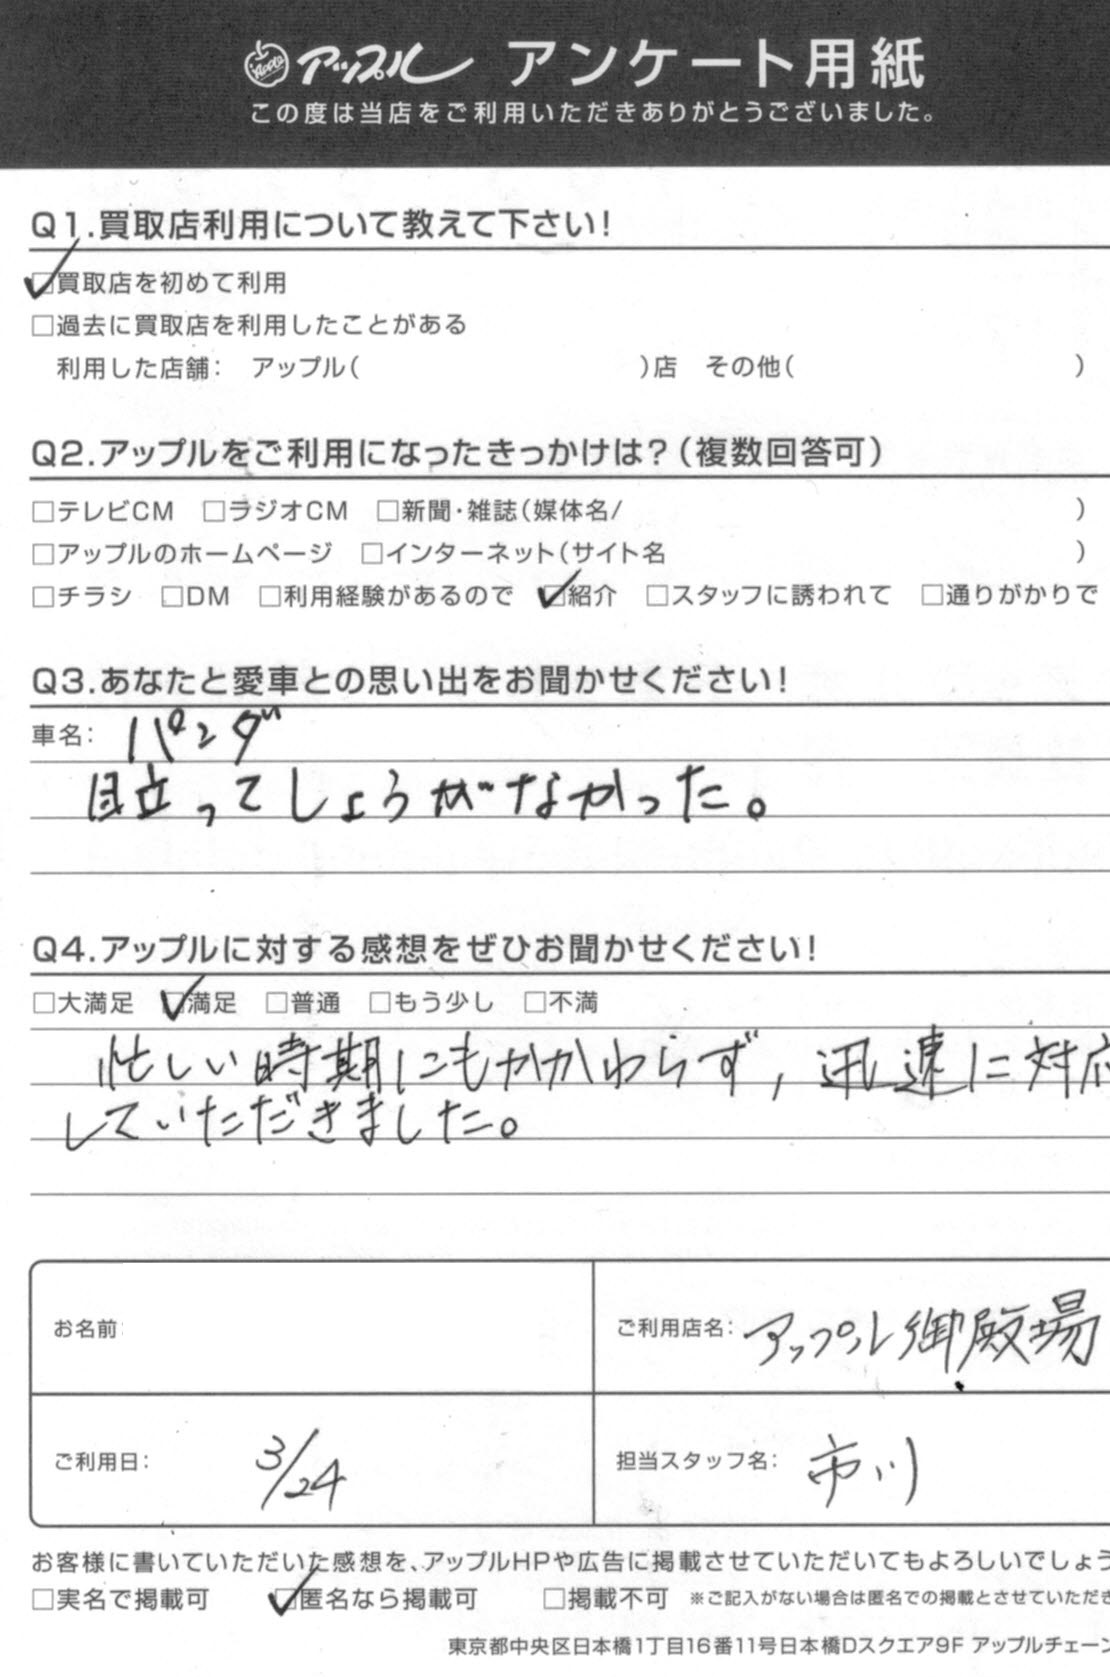 Apple アップル アンケート用紙
この度は当店をご利用いただきありがとうございました。
Q1.買取店利用について教えて下さい!
☑買取店を初めて利用
□過去に買取店を利用したことがある
利用した店舗: アップル( )店 その他( )
Q2.アップルをご利用になったきっかけは?(複数回答可)
□テレビCM □ラジオCM □新聞・雑誌(媒体名/ )
□アップルのホームページ □インターネット(サイト名 )
□チラシ □DM □利用経験があるので ☑紹介 □スタッフに誘われて □通りがかりで
Q3.あなたと愛車との思い出をお聞かせください!
車名: パンダ
目立ってしょうがなかった。
Q4.アップルに対する感想をぜひお聞かせください!
□大満足 ☑満足 □普通 □もう少し □不満
忙しい時期にもかかわらず,迅速に対応
していただきました。
お名前:
ご利用店名: アップル御殿場
ご利用日: 3/24
担当スタッフ名: 市川
お客様に書いていただいた感想を、アップルHPや広告に掲載させていただいてもよろしいでしょう
□実名で掲載可 ☑匿名なら掲載可 □掲載不可 ※ご記入がない場合は匿名での掲載とさせていただき
東京都中央区日本橋1丁目16番11号日本橋Dスクエア9F アップルチェーン